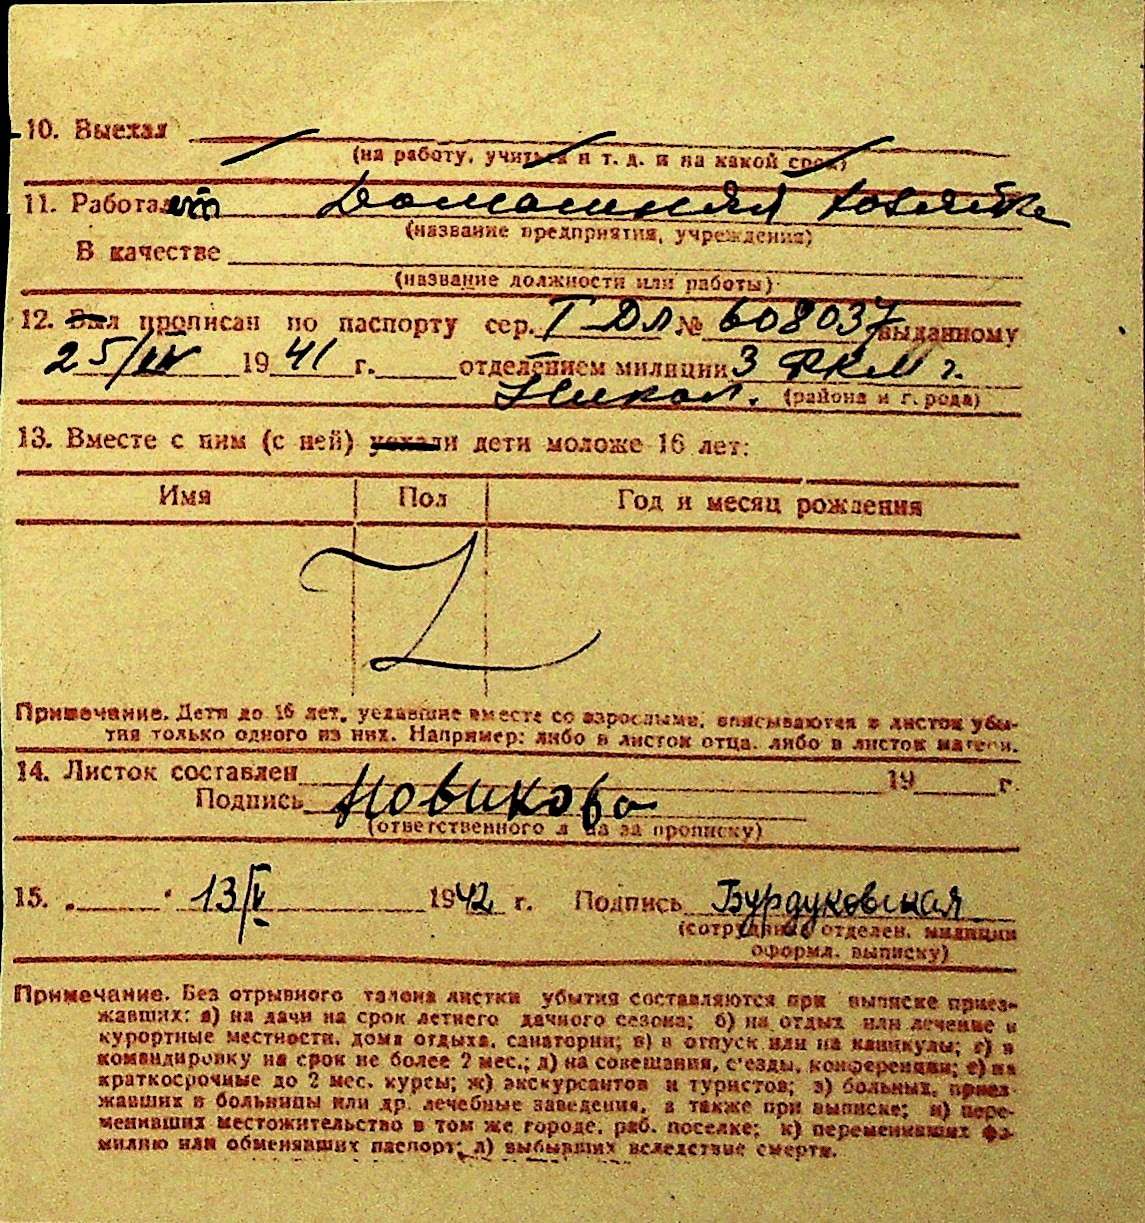 10. Выехал
(на работу, учиться и т. д. и на какой срок)
11. Работает Домашняя хозяйка
(название предприятия, учреждения)
В качестве
(название должности или работы)
12. Был прописан по паспорту сер. I ДЛ № 608037 выданному
25/IV 1941 г. отделением милиции 3 РКМ г.
Никол. (района и города)
13. Вместе с ним (с ней) уехали дети моложе 16 лет:
Имя Пол Год и месяц рождения
Примечание. Дети до 16 лет, уехавшие вместе со взрослыми, вписываются в листок убы-
тия только одного из них. Например: либо в листок отца, либо в листок матери.
14. Листок составлен 19 г.
Подпись Новикова
(ответственного лица за прописку)
15. „ " 13/V 1942 г. Подпись Бурдуковская
(сотрудника отделен. милиции
оформл. выписку)
Примечание. Без отрывного талона листки убытия составляются при выписке приез-
жавших: а) на дачи на срок летнего дачного сезона; б) на отдых или лечение в
курортные местности, дома отдыха, санатории; в) в отпуск или на каникулы; г) в
командировку на срок не более 2 мес.; д) на совещания, с'езды, конференции; е) на
краткосрочные до 2 мес. курсы; ж) экскурсантов и туристов; з) больных, приез-
жавших в больницы или др. лечебные заведения, а также при выписке; и) пере-
менивших местожительство в том же городе, раб. поселке; к) переменивших фа-
милию или обменявших паспорт; л) выбывших вследствие смерти.